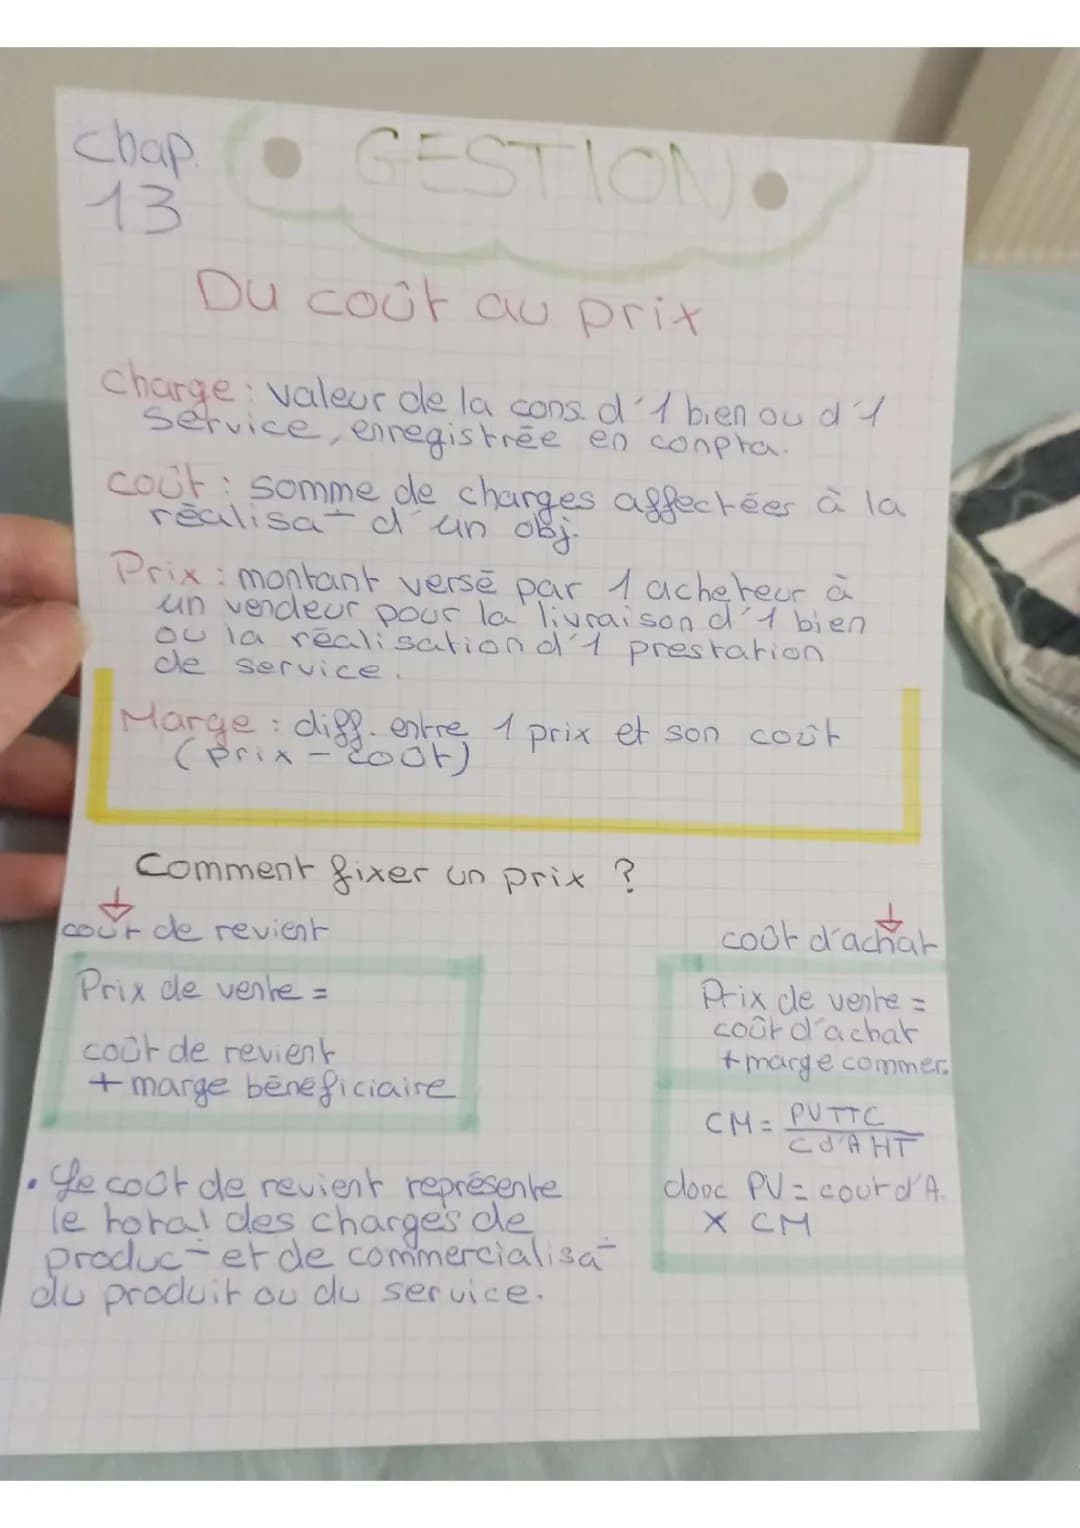 Chap. 13
GESTION
Du coût au prix
Charge : valeur de la cons. d'1 bien ou d'1
service, enregistrée en conpta.
coût : somme de charges affectées à la
réalisa- d'un obj.
Prix : montant versé par 1 acheteur à
un vendeur pour la livraison d'1 bien
ou la réalisation d'1 prestation
de service.
Marge : diff. entre 1 prix et son coût
(prix - coût)
Comment fixer un prix ?
coût de revient
Prix de vente =
coût de revient
+ marge bénéficiaire
• Le coût de revient représente
le total des charges de
produc- et de commercialisa-
du produit ou du service.
coût d'achat
Prix de vente =
coût d'achat
+ marge commer.
CM = PVTTC
Cd'A HT
donc PV = cout d'A.
× CM